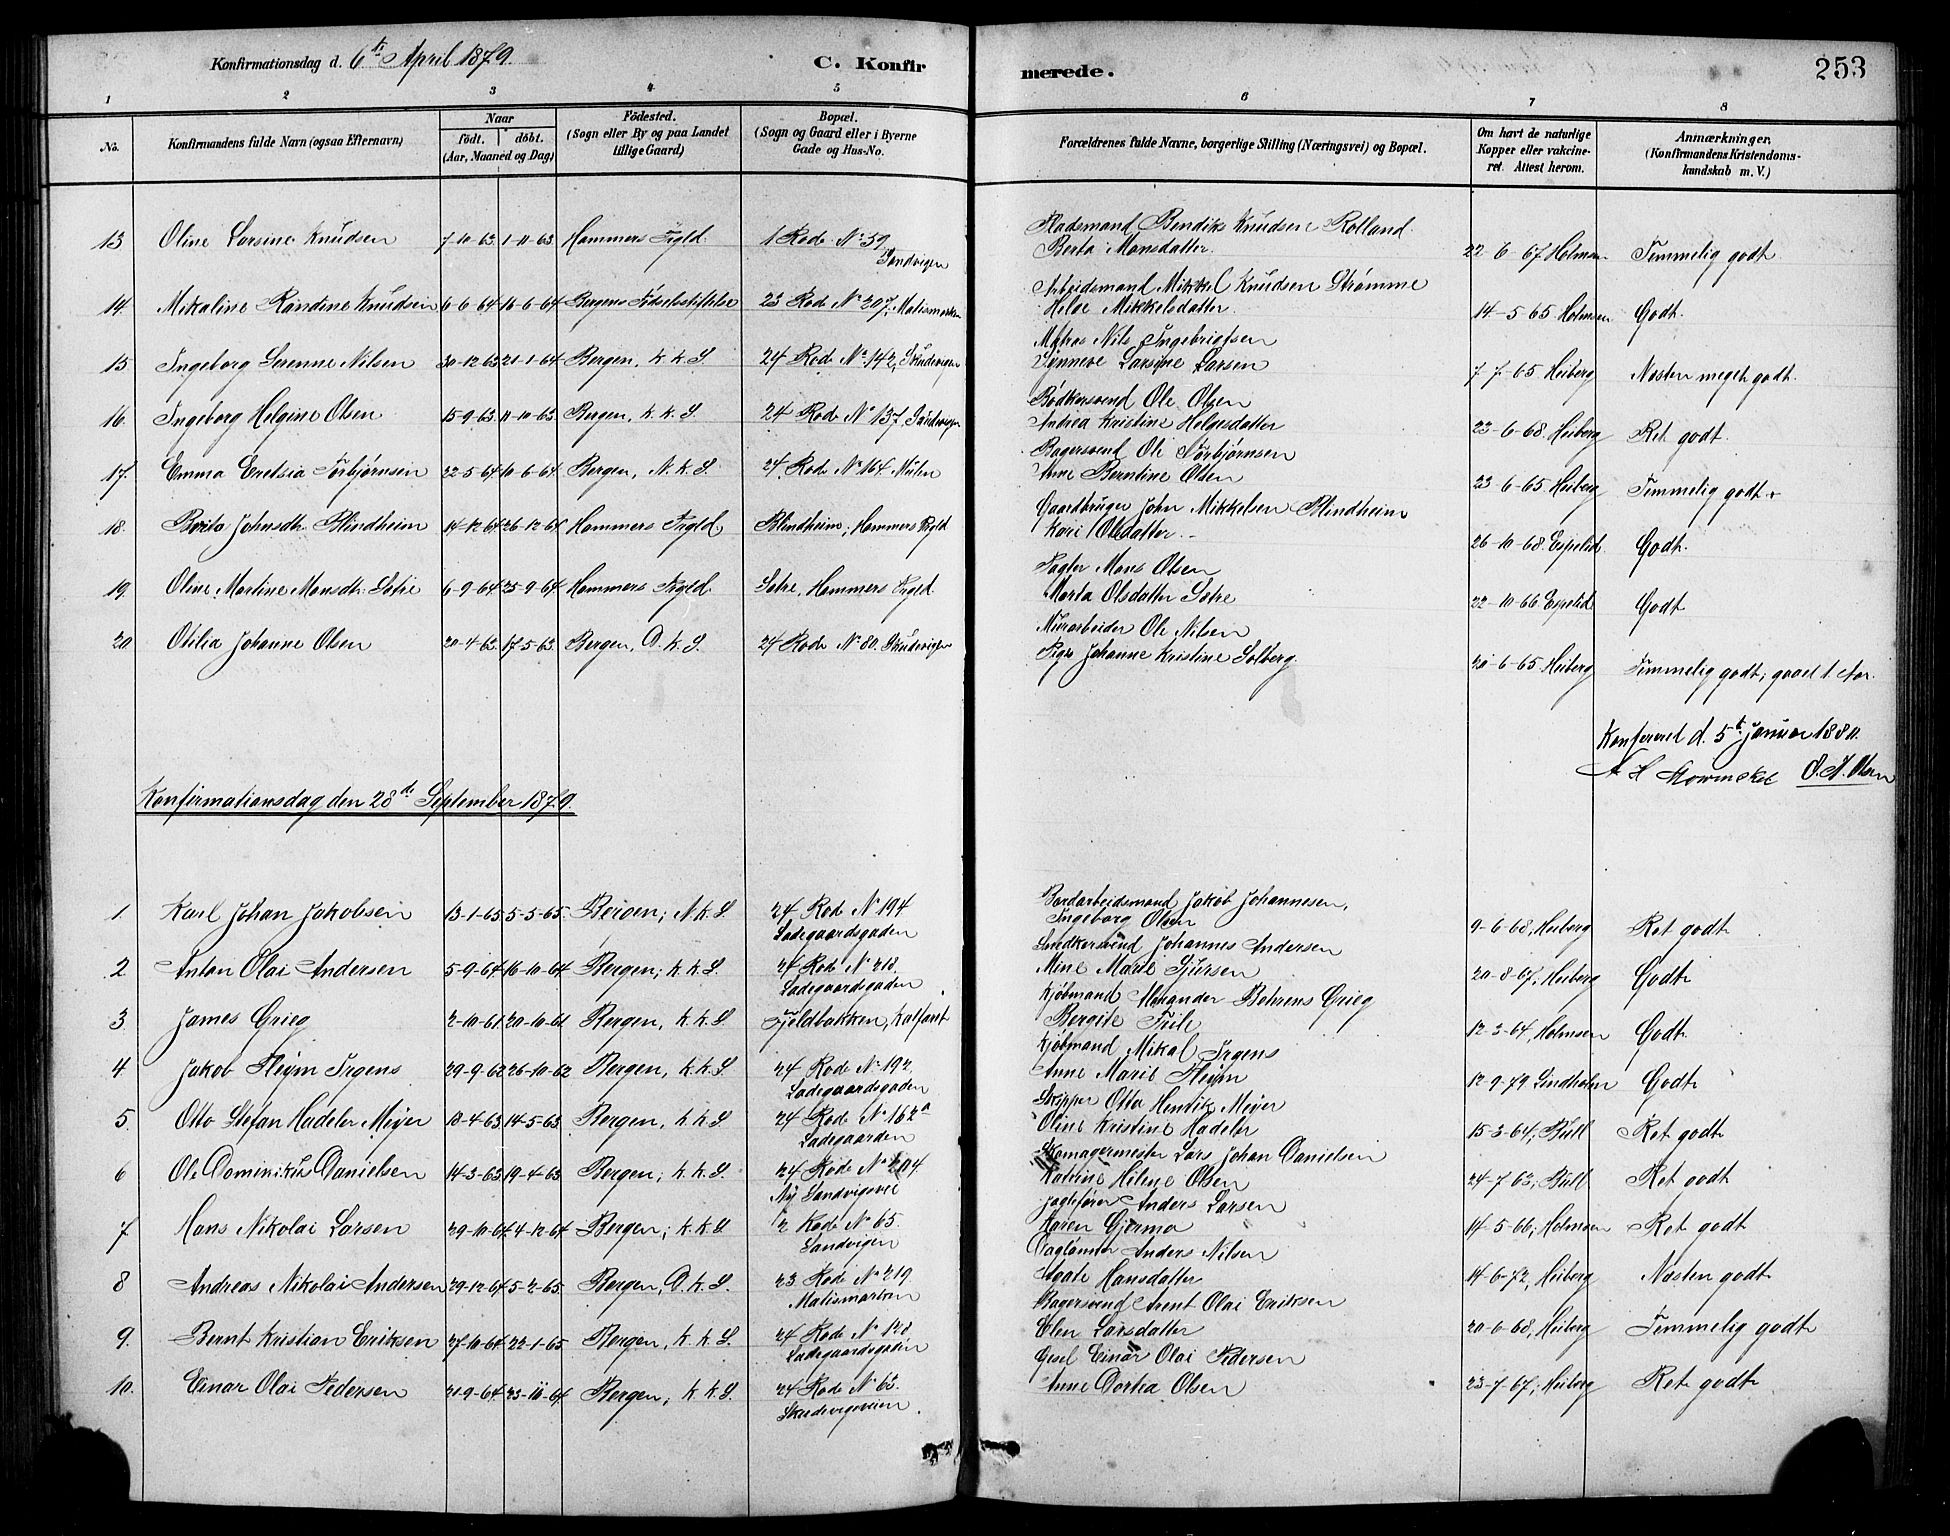 Konfirmationsdag d. 6te April 1879.
C. Konfirmerede.
253
1 2 3 4 5 6 7 8
No.
Konfirmandens fulde Navn (ogsaa Efternavn)
Naar
födt. döbt.
(Aar, Maaned og Dag)
Födested.
(Sogn eller By og paa Landet
tillige Gaard)
Bopæl.
(Sogn og Gaard eller i Byerne
Gade og Hus-No.
Forældrenes fulde Navne, borgerlige Stilling (Næringsvei) og Bopæl.
Om havt de naturlige
Kopper eller vakcine-
ret. Attest herom.
Anmærkninger.
(Konfirmandens Kristendoms-
kundskab m. V.)
13 Oline Larsine Knudsen 7-10-63 1-11-63 Hammers Prgld. 1 Rode No 59 Sandvigen
Pladsmand Bendiks Knudsen Rolland
Berta Monsdatter 22-6-67 Holmsen Temmelig godt.
14. Mikaline Randine Knudsen 6-6-64 16-6-64 Bergens Fødselsstiftelse 23 Rode No 207, Malismarken
Arbeidsmand Mikkel Knudsen Strømme
Helge Mikkelsdatter 14-5-65 Holmsen Godt.
15. Ingeborg Serenne Nilsen 30-12-63 21-1-64 Bergen, K.K.S. 24 Rode No 142, Skudevigen
Matros Nils Ingebrigtsen
Synneve Larsine Larsen 7-7-65 Heiberg Næsten meget godt.
16. Ingeborg Helgine Olsen 15-9-63 11-10-63 Bergen, K.K.S. 24 Rode No 137, Sandvigen
Bødkersvend Ole Olsen
Andrea Kristine Helgesdatter 23-6-68 Heiberg Ret godt.
17. Emma Eretsia Torbjørnsen 22-5-64 10-6-64 Bergen, N.K.S. 24 Rode No 164 Mulen
Bagersvend Ole Torbjørnsen
Ane Berntine Olsen 23-6-65 Heiberg Temmelig godt.
18. Brita Johnsdtr Blindheim 14-12-64 26-12-64 Hammers Prgld. Blindheim, Hammers Prgld
Gaardbruger John Mikkelsen Blindheim
Kari Olsdatter 26-10-68 Espelid Godt.
19. Oline Martine Monsdtr. Sætre 6-9-64 25-9-64 Hammers Prgld. Sætre, Hammers Prgld
Mons Olsen
Marta Olsdatter Sætre 22-10-66 Espelid Godt
20. Otilia Johanne Olsen 20-4-63 17-5-63 Bergen, D.K.S. 24 Rode No 80. Skudevigen
Murarbeider Ole Nilsen
Pige Johanne Kristine Solberg 20-6-65 Heiberg Temmelig godt; gaaet 1. Aar.
Konfereret d. 5te Januar 1880.
A H Mowinckel O. A. Olsen
Konfirmationsdag den 28de September 1879.
1. Karl Johan Jakobsen 13-1-65 5-5-65. Bergen; N.K.S. 24 Rode No 194 Ladegaardsgaden
Jordarbeidsmand Jakob Johannesen,
Ingeborg Olsen 9-6-68, Heiberg Ret godt
2 Anton Olai Andersen 5-9-64 16-10-64 Bergen; K.K.S. 24 Rode No 218. Ladegaardsgaden
Johannes Andersen
Mine Marie Sjursen 20-8-67, Heiberg Godt
3. James Grieg 2-10-61 20-10-61 Bergen, K.K.S. Fjeldbakken, Kalfaret
Kjøbmand Alexander Bohrens Grieg
Bergite Friele 12-3-64, Holmsen Godt
4 Jakob Fleym Irgens 29-9-62 26-10-62 Bergen, K.K.S. 24 Rode No 192, Ladegaardsgaden
Kjøbmand Mikal Irgens
Anne Marie Fleym 12-9-79 Lindholm Godt
5. Otto Stefan Hadeler Meyer 18-4-63 14-5-63 Bergen, K.K.S 24 Rode No 162a Ladegaarden
Skipper Otto Henrik Meyer
Oline Kristine Hadeler 15-3-64; Bull Ret godt
6 Ole Dominikus Danielsen 14-3-63 19-4-63 Bergen; K.K.S. 24 Rode No 204 Ny Sandvigsvei
Skomagermester Lars Johan Danielsen
Katrine Helene Olsen 24-7-63; Bull Ret godt
7 Hans Nikolai Larsen 29-10-64 4-12-64 Bergen; K.K.S 2 Rode No 65. Sandvigen
Jagtefører Anders Larsen
Maren Gjerma 14-5-66; Holmsen Ret godt
8 Andreas Nikolai Andersen 29-12-64 5-2-65. Bergen, D.K.S. 23 Rode No 219. Malismarken
Dagløner Anders Nilsen
Agate Hansdatter 14-6-72, Heiberg Næsten godt
9. Bernt Kristian Eriksen 27-10-64 22-1-65 Bergen, K.K.S. 24 Rode No 128 Ladegaardsgaden
Bagersvend Arent Olai Eriksen
Elen Larsdatter 20-6-68, Heiberg Temmelig godt
10. Einar Olai Pedersen 21-9-64 23-10-64 Bergen; K.K.S 24 Rode No 63. Skudevigsveien
Gjesel Einar Olai Pedersen
Anne Dortea Olsen 23-7-67; Heiberg Ret godt